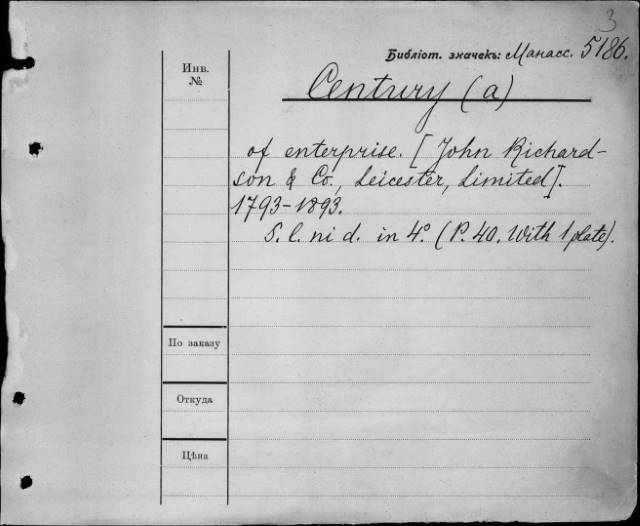 3
Библіот. значекъ: Манасс. 5186.
Инв.
№
Century (a)
of enterprise. [John Richard-
son & Co., Leicester, Limited].
1793-1893.
S. l. ni d. in 4°. (P. 40. With 1 plate).
По заказу
Откуда
Цѣна